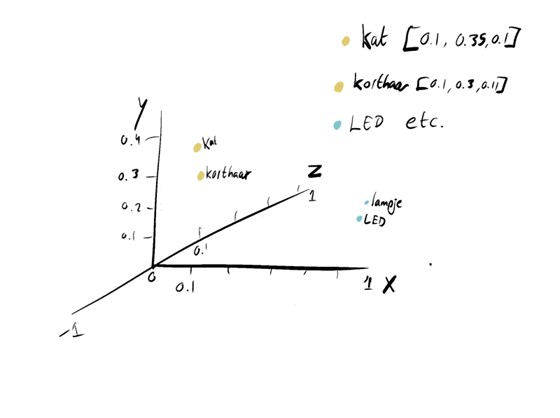 Kat [0.1, 0.35, 0.1]
korthaar [0.1, 0.3, 0.1]
LED etc.
Y
0.4
Kat
0.3
korthaar
Z
1
0.2
lampje
LED
0.1
0.1
0
0.1
1 X
-1